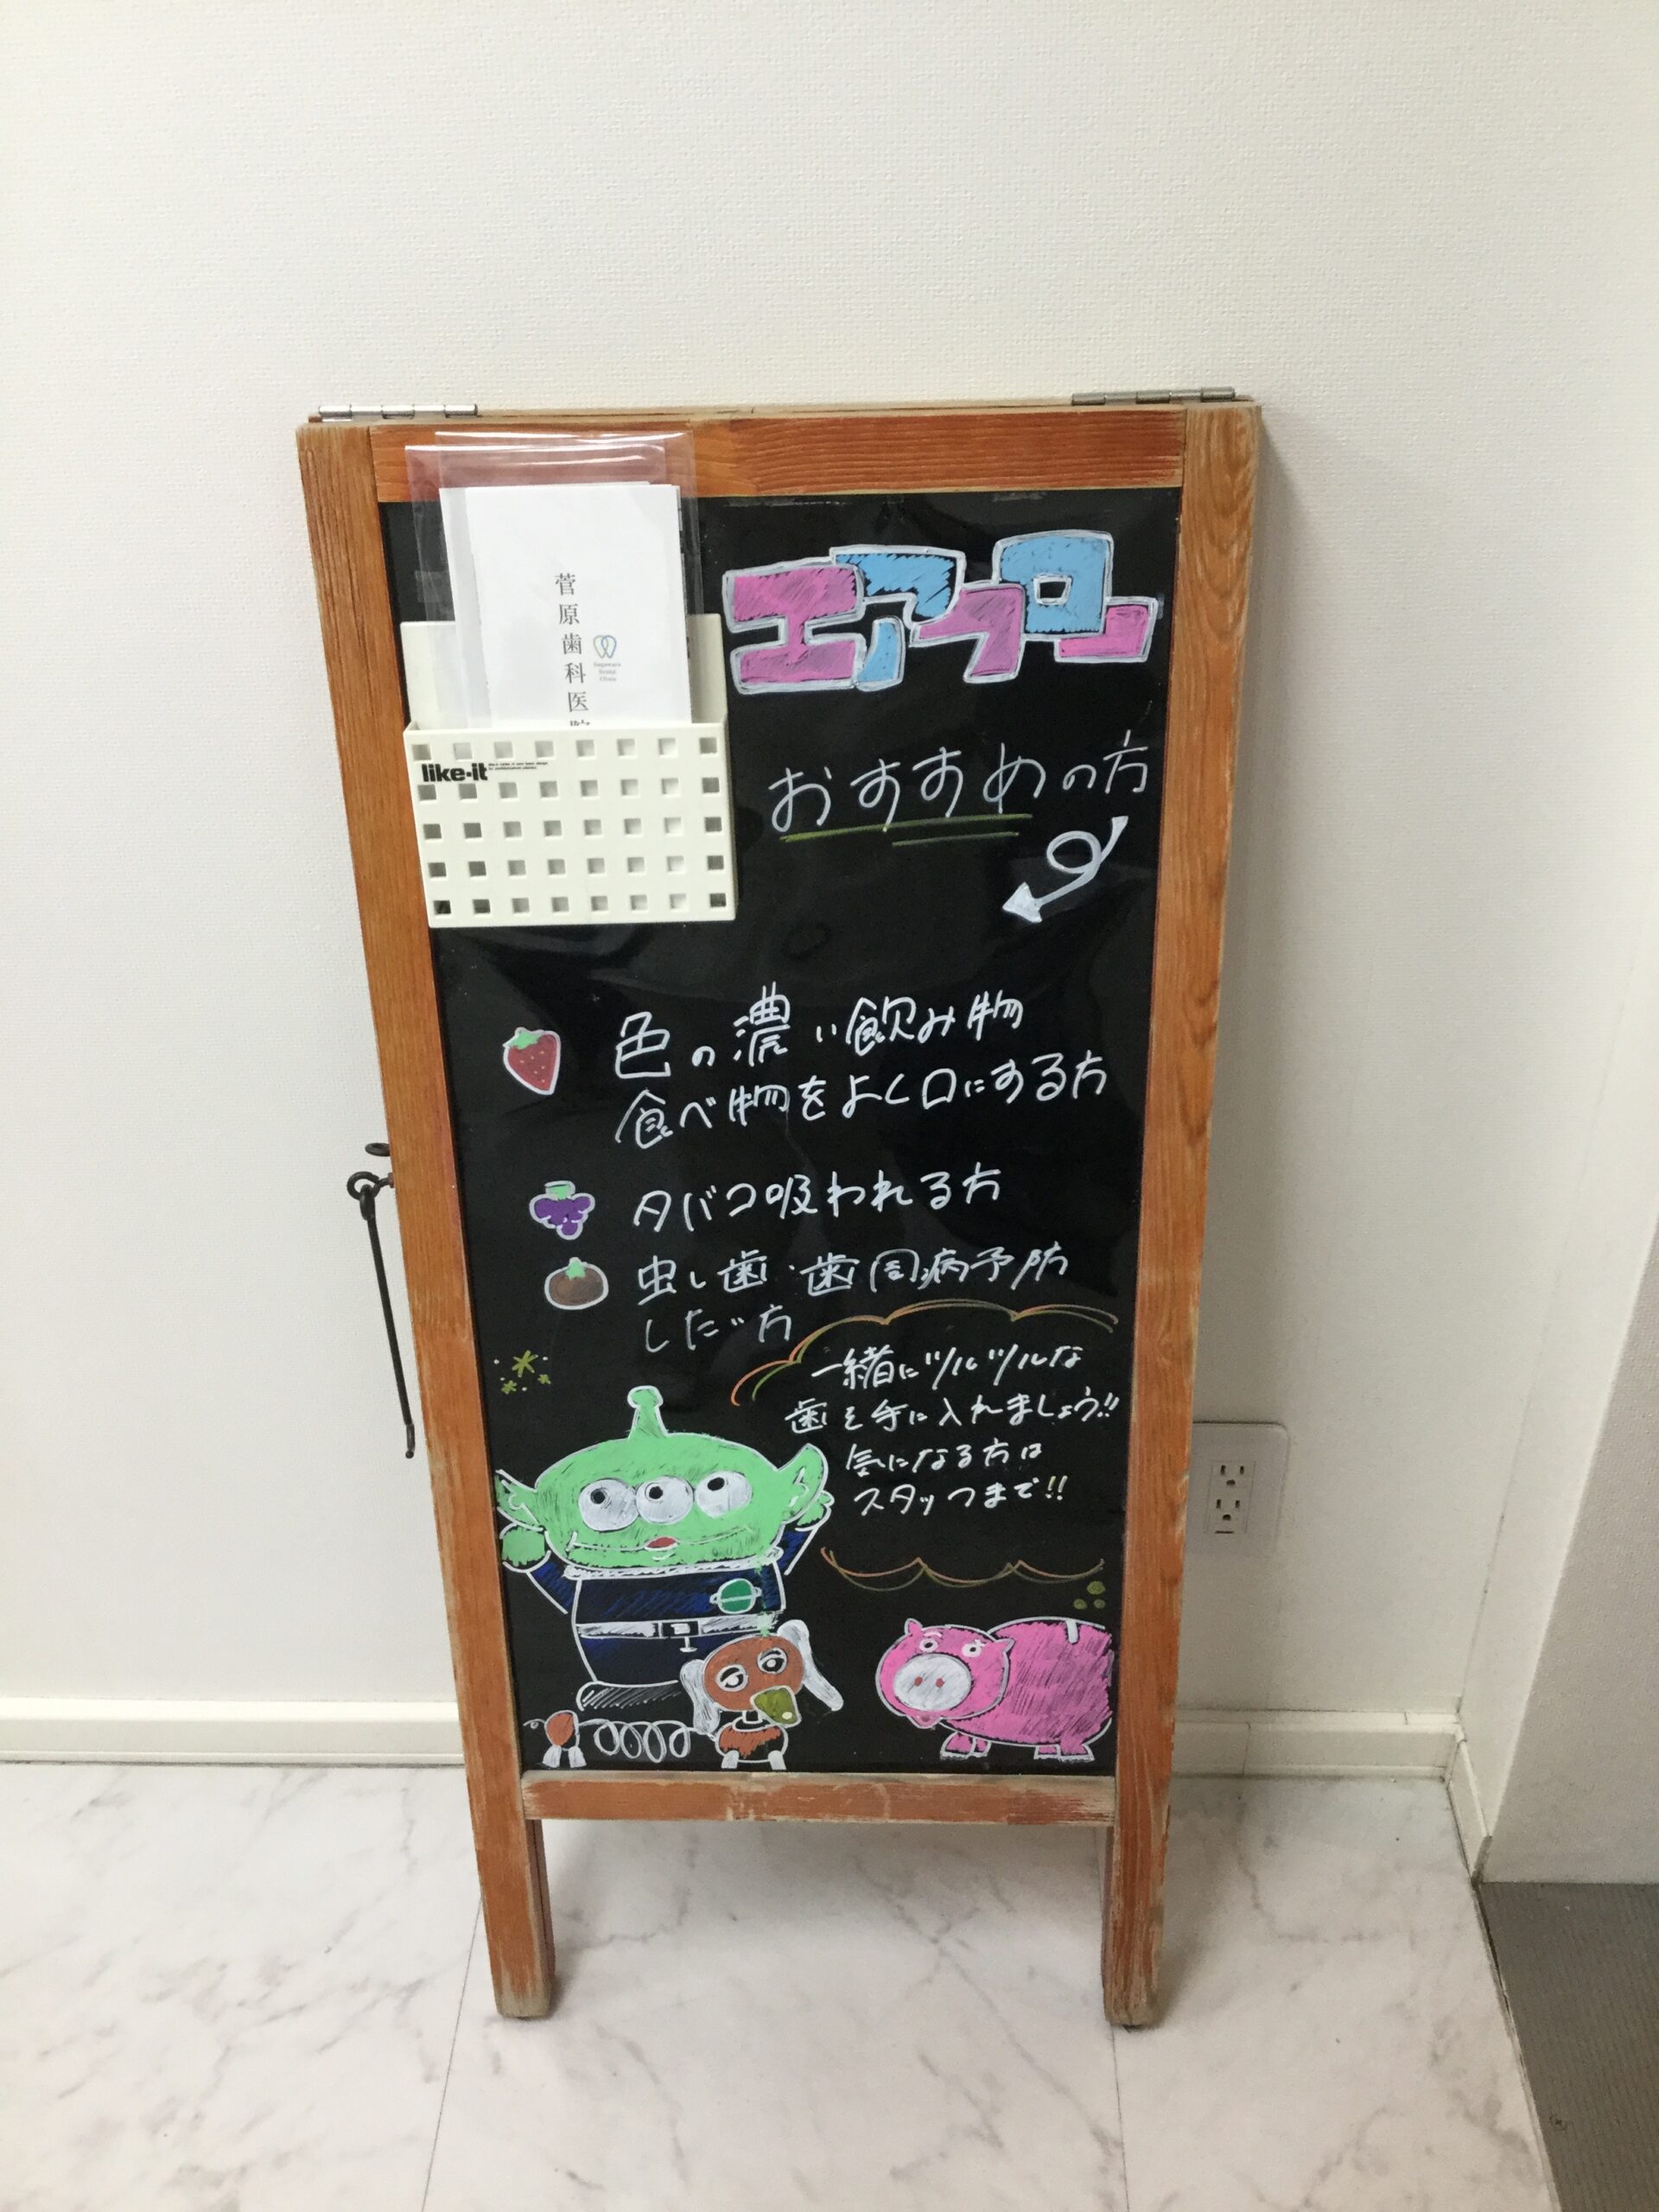 エアフロー
菅原歯科医院
Sugawara
Dental
Clinic
like-it
おすすめの方
色の濃い飲み物
食べ物をよく口にする方
タバコ吸われる方
虫し歯・歯周病予防
したい方
一緒にツルツルな
歯を手に入れましょう!!
気になる方は
スタッフまで!!